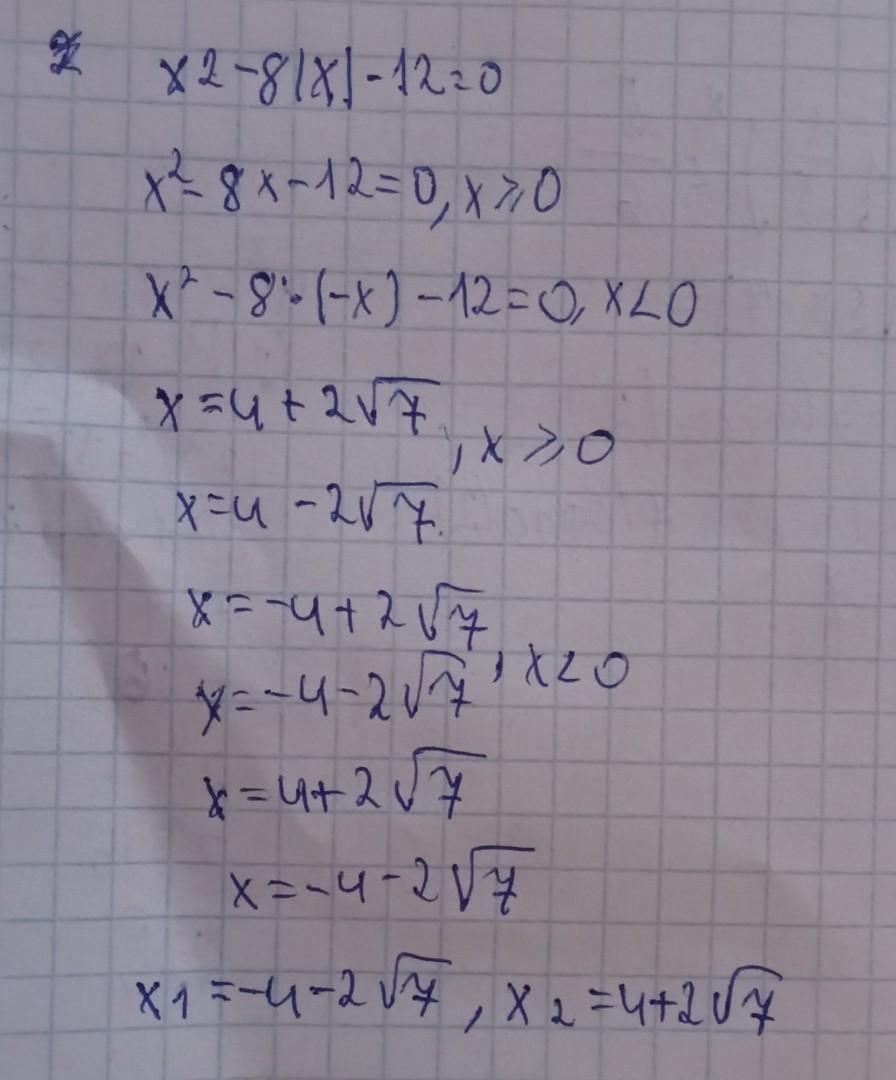 2 x2-8|x|-12=0
x²-8x-12=0, x⩾0
x²-8·(-x)-12=0, x<0
x=4+2√7
, x⩾0
x=4-2√7
x=-4+2√7
, x<0
x=-4-2√7
x=4+2√7
x=-4-2√7
x1=-4-2√7, x2=4+2√7